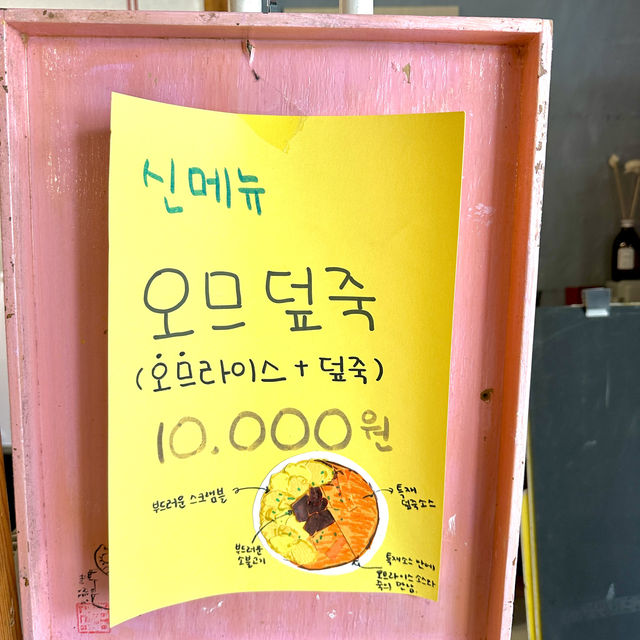 신메뉴
오므덮죽
(오므라이스 + 덮죽)
10.000원
부드러운 스크램블
특재
덮죽소스
부드러운
소불고기
특재소스 안에
오므라이스 소스와
죽의 만남.